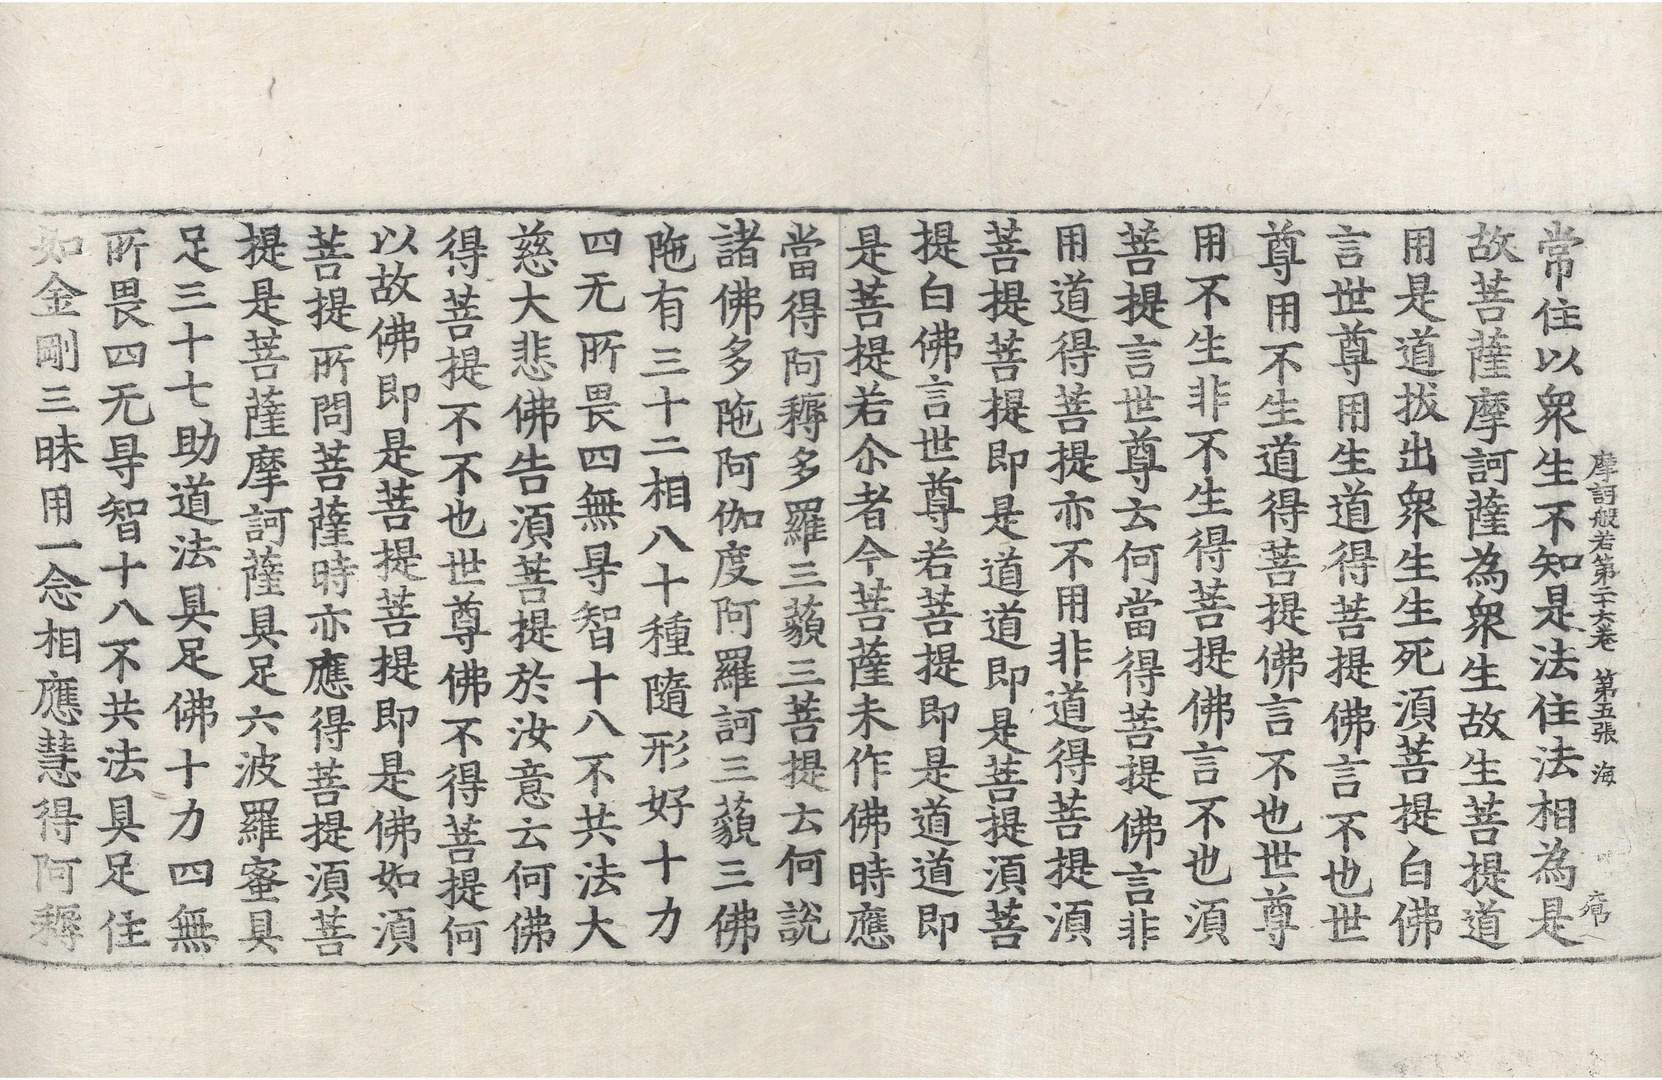 摩訶般若第二十六卷 第五張 海
常住以衆生不知是法住法相為是
故菩薩摩訶薩為衆生故生菩提道
用是道拔出衆生生死湏菩提白佛
言世尊用生道得菩提佛言不也世
尊用不生道得菩提佛言不也世尊
用不生非不生得菩提佛言不也湏
菩提言世尊云何當得菩提佛言非
用道得菩提亦不用非道得菩提湏
菩提菩提即是道道即是菩提湏菩
提白佛言世尊若菩提即是道道即
是菩提若尒者今菩薩未作佛時應
當得阿耨多羅三藐三菩提云何說
諸佛多陁阿伽度阿羅訶三藐三佛
陁有三十二相八十種隨形好十力
四无所畏四無㝵智十八不共法大
慈大悲佛告湏菩提於汝意云何佛
得菩提不不也世尊佛不得菩提何
以故佛即是菩提菩提即是佛如湏
菩提所問菩薩時亦應得菩提湏菩
提是菩薩摩訶薩具足六波羅蜜具
足三十七助道法具足佛十力四無
所畏四无㝵智十八不共法具足住
如金剛三昧用一念相應慧得阿耨